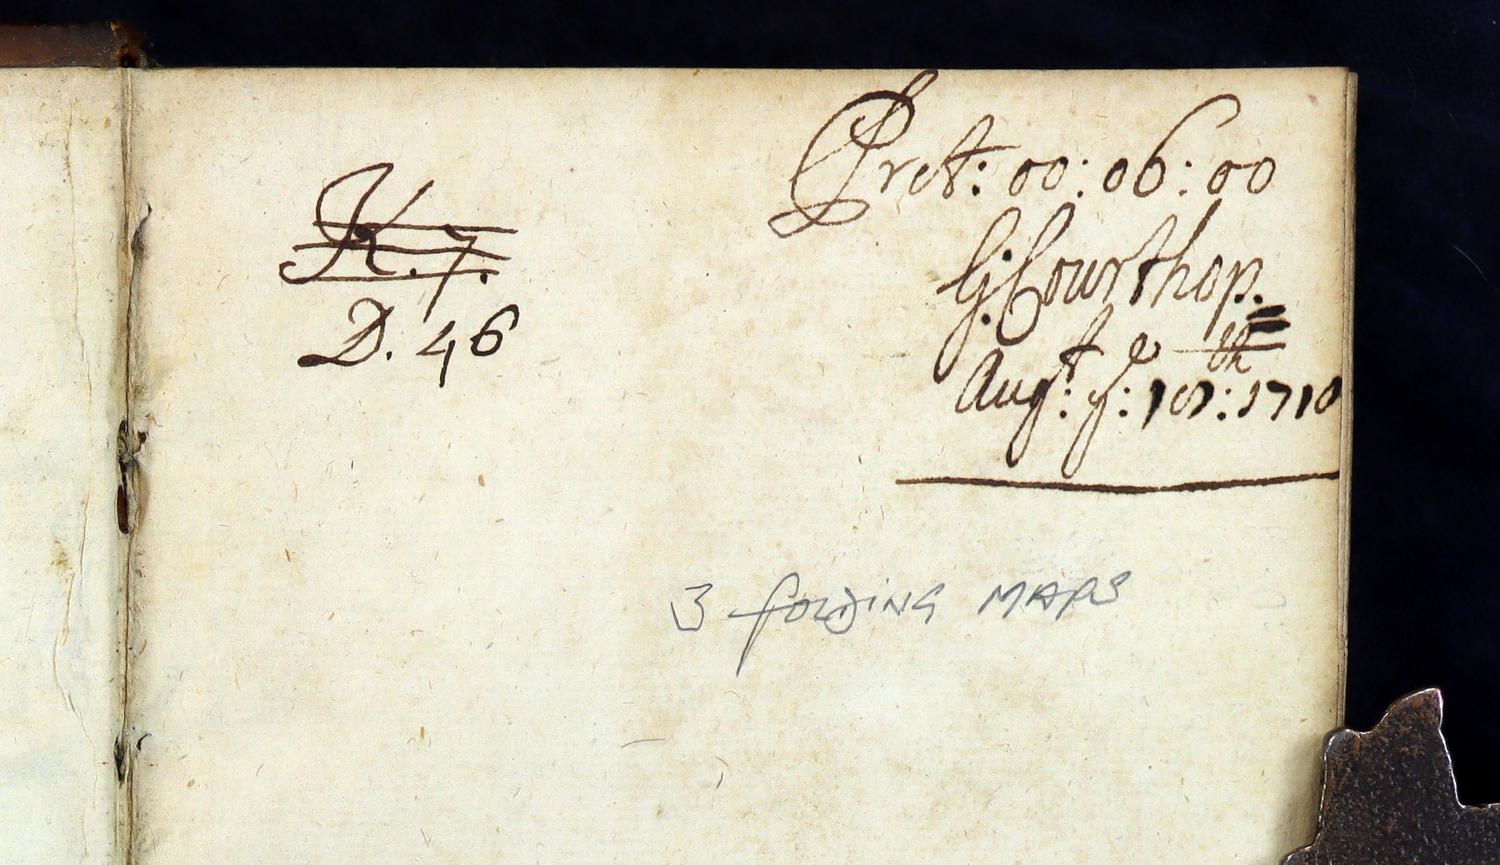 Pret: 00:06:00
K.7.
G: Courthop.
D. 46
Augt: ye: 18th: 1710
3 FOLDING MAPS